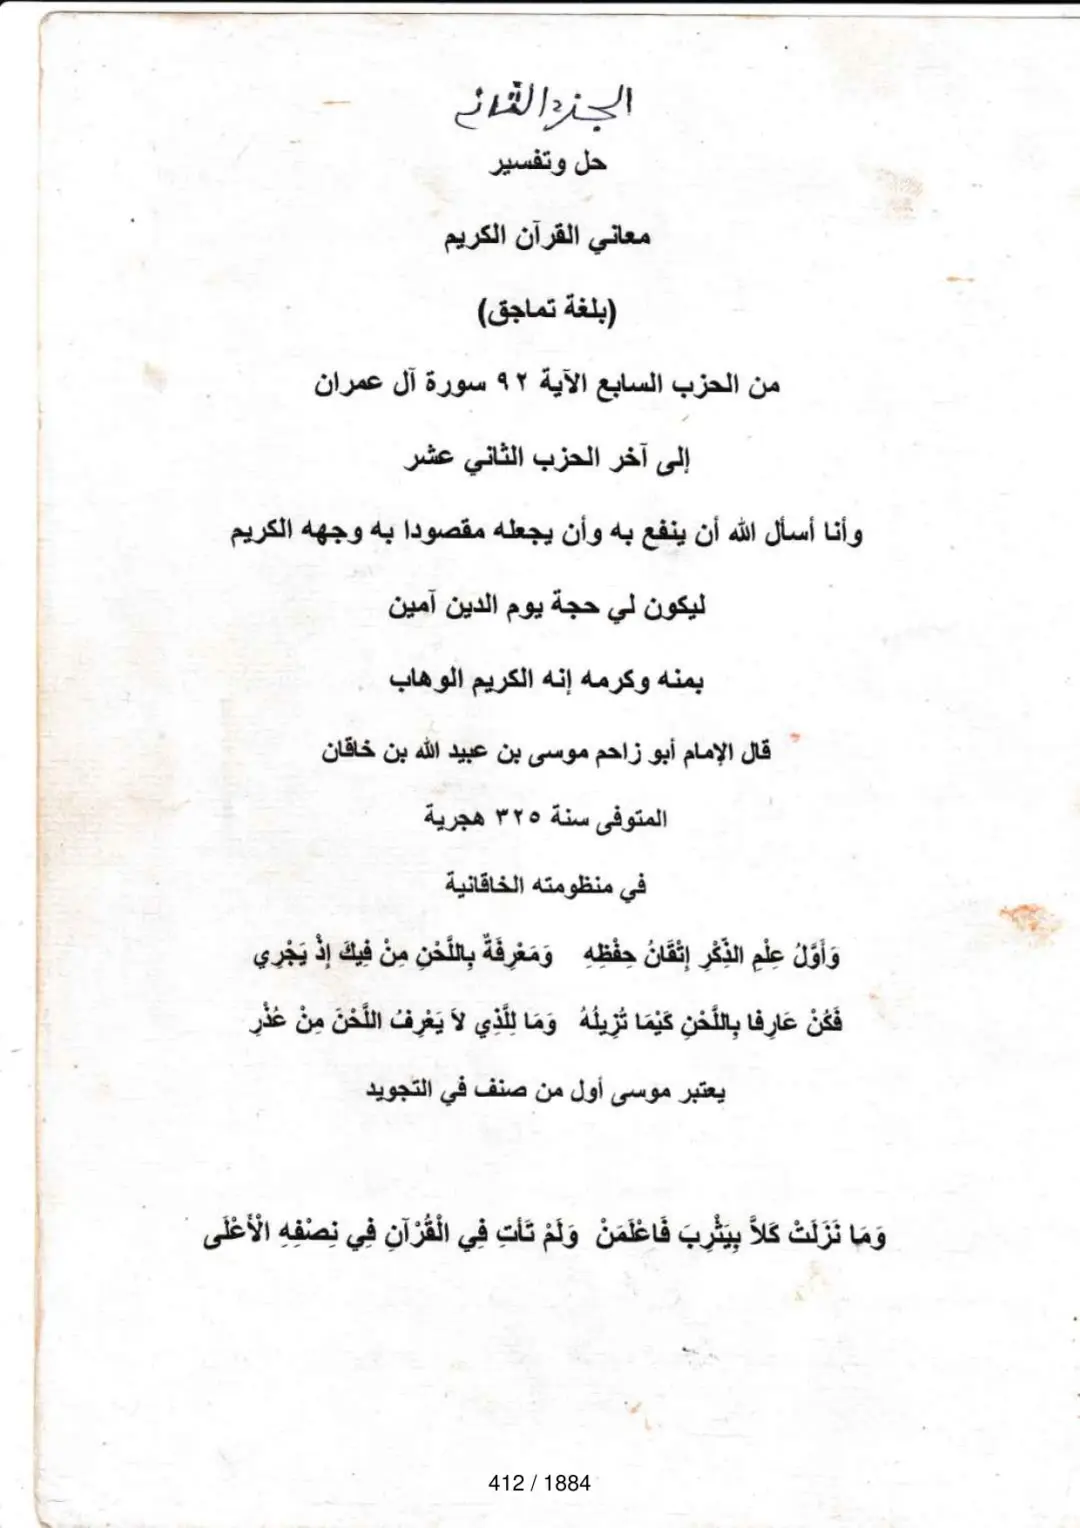 الجزء الثاني
حل وتفسير
معاني القرآن الكريم
(بلغة تماجق)
من الحزب السابع الآية ٩٢ سورة آل عمران
إلى آخر الحزب الثاني عشر
وأنا أسأل الله أن ينفع به وأن يجعله مقصودا به وجهه الكريم
ليكون لي حجة يوم الدين آمين
بمنه وكرمه إنه الكريم الوهاب
قال الإمام أبو زاحم موسى بن عبيد الله بن خاقان
المتوفى سنة ٣٢٥ هجرية
في منظومته الخاقانية
وَأَوَّلُ عِلْمِ الذِّكْرِ إِتْقَانُ حِفْظِهِ وَمَعْرِفَةٌ بِاللَّحْنِ مِنْ فِيكَ إِذْ يَجْرِي
فَكُنْ عَارِفا بِاللَّحْنِ كَيْمَا تُزِيلُهُ وَمَا لِلَّذِي لاَ يَعْرِفُ اللَّحْنَ مِنْ عُذْرِ
يعتبر موسى أول من صنف في التجويد
وَمَا نَزَلَتْ كَلاَّ بِيَثْرِبَ فَاعْلَمَنْ وَلَمْ تَأْتِ فِي الْقُرْآنِ فِي نِصْفِهِ الْأَعْلَى
412 / 1884